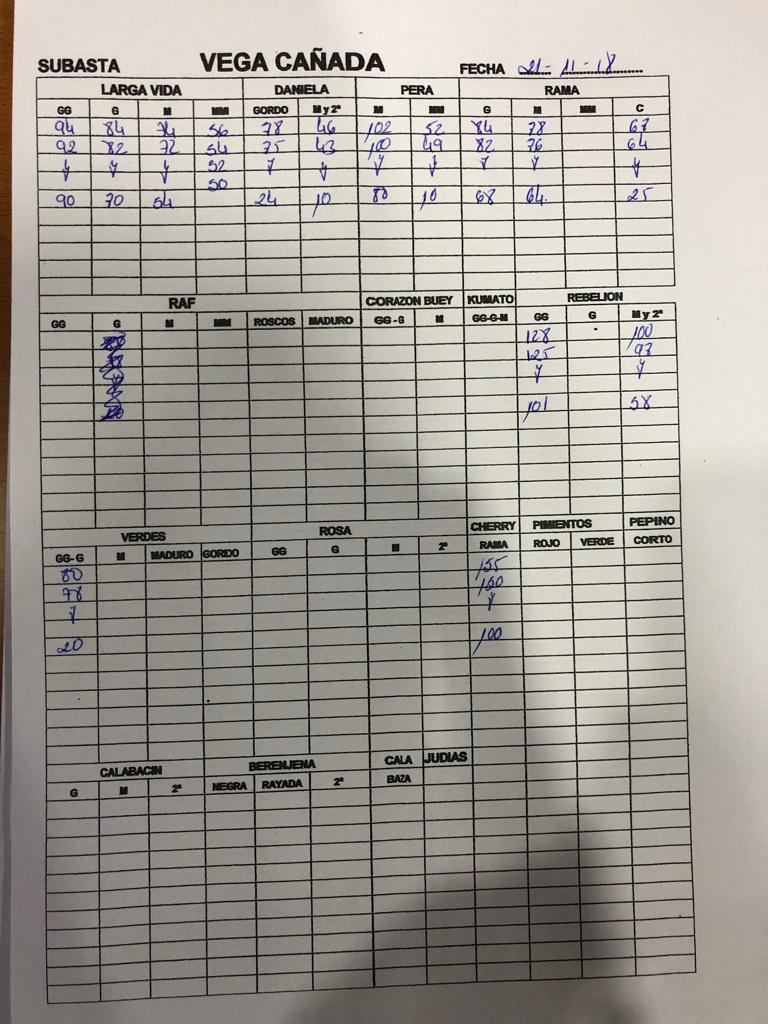 SUBASTA VEGA CAÑADA FECHA 21-11-18
LARGA VIDA DANIELA PERA RAMA
GG G M MM GORDO M y 2ª M MM G M MM C
94 84 74 56 78 46 102 52 84 78 67
92 82 72 54 75 43 100 49 82 76 64
52
50
90 70 54 24 10 80 10 68 64 25
RAF CORAZON BUEY KUMATO REBELION
GG G M MM ROSCOS MADURO GG-G M GG-G-M GG G M y 2ª
128 100
125 97
101 58
VERDES ROSA CHERRY PIMIENTOS PEPINO
GG-G M MADURO GORDO GG G M 2ª RAMA ROJO VERDE CORTO
80 155
78 150
20 100
CALABACIN BERENJENA CALA JUDIAS
G M 2ª NEGRA RAYADA 2ª BAZA